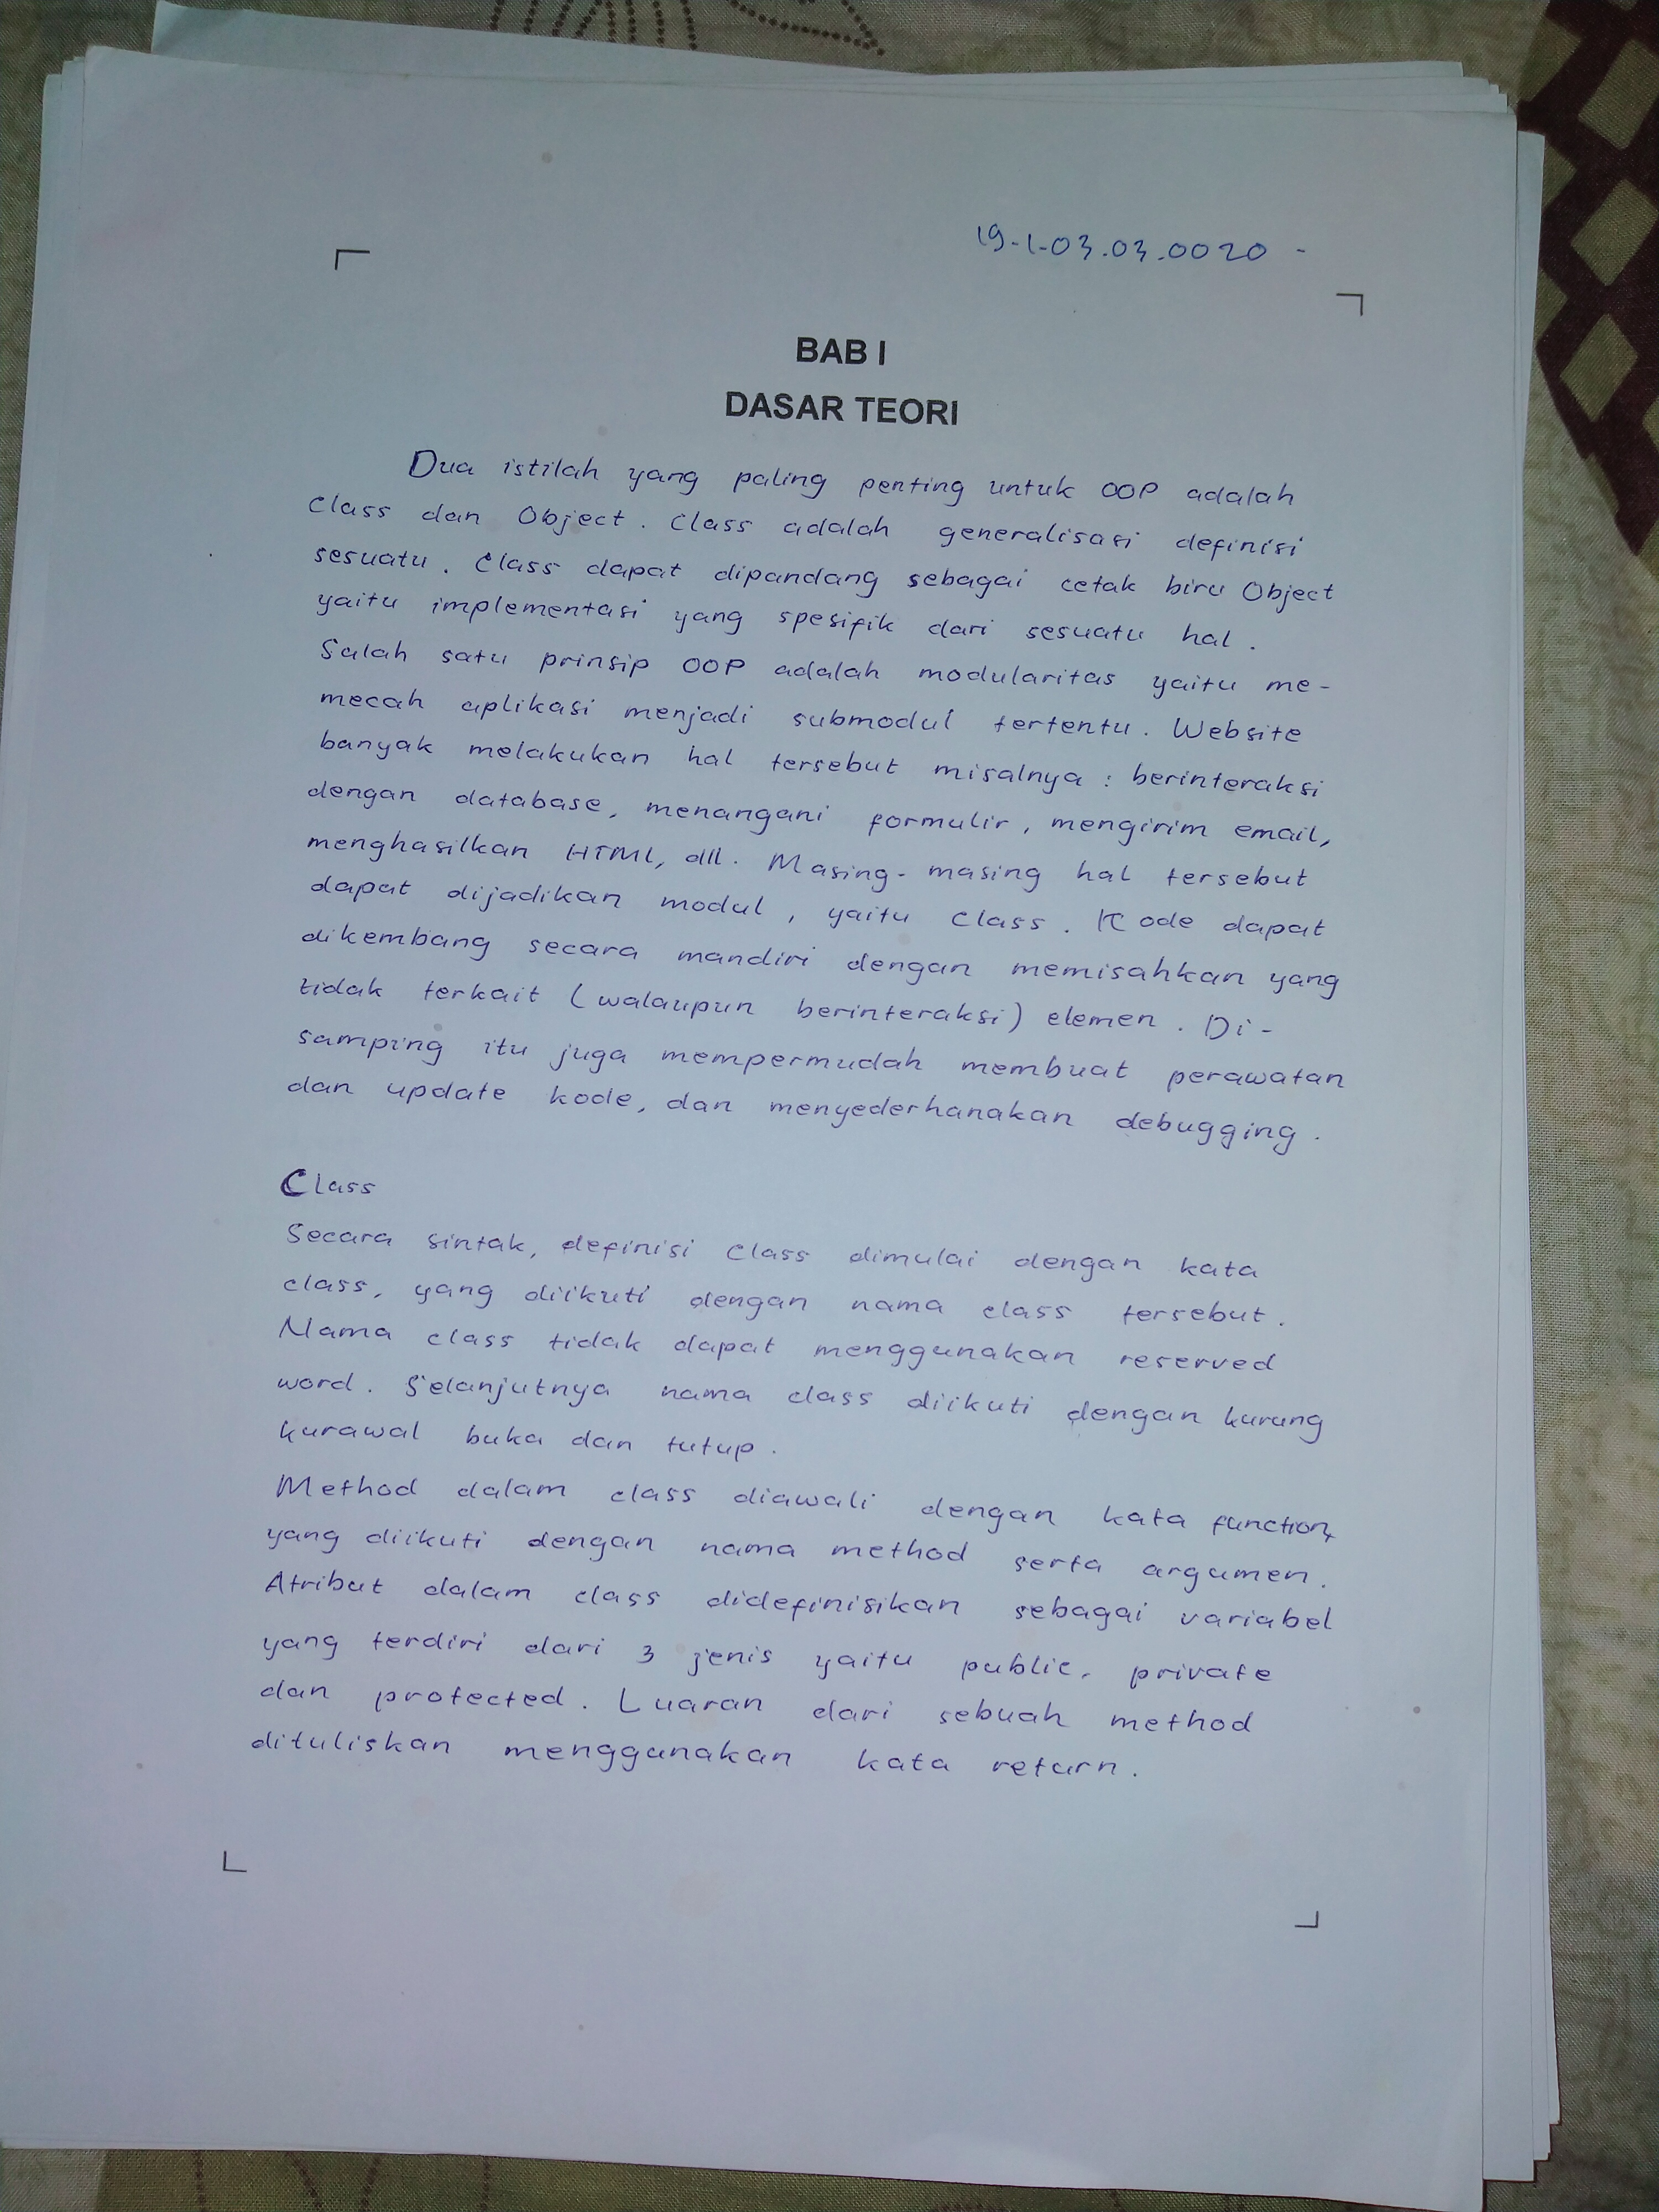 19-1-03.03.0020 -
BAB I
DASAR TEORI
Dua istilah yang paling penting untuk OOP adalah
Class dan Object. Class adalah generalisasi definisi
sesuatu. Class dapat dipandang sebagai cetak biru Object
yaitu implementasi yang spesifik dari sesuatu hal.
Salah satu prinsip OOP adalah modularitas yaitu me-
mecah aplikasi menjadi submodul tertentu. Website
banyak melakukan hal tersebut misalnya : berinteraksi
dengan database, menangani formulir, mengirim email,
menghasilkan HTML, dll. Masing-masing hal tersebut
dapat dijadikan modul, yaitu class. Kode dapat
dikembang secara mandiri dengan memisahkan yang
tidak terkait (walaupun berinteraksi) elemen. Di-
samping itu juga mempermudah membuat perawatan
dan update kode, dan menyederhanakan debugging.
Class
Secara sintak, definisi class dimulai dengan kata
class, yang diikuti dengan nama class tersebut.
Nama class tidak dapat menggunakan reserved
word. Selanjutnya nama class diikuti dengan kurung
kurawal buka dan tutup.
Method dalam class diawali dengan kata function,
yang diikuti dengan nama method serta argumen.
Atribut dalam class didefinisikan sebagai variabel
yang terdiri dari 3 jenis yaitu public, private
dan protected. Luaran dari sebuah method
dituliskan menggunakan kata return.